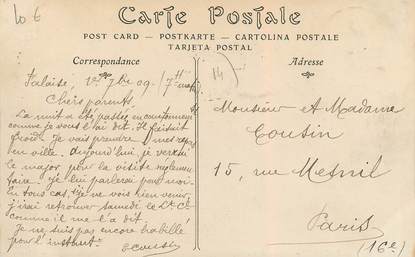 10 €
Carte Postale
POST CARD — POSTKARTE — CARTOLINA POSTALE
TARJETA POSTAL
Correspondance
Falaise, 1er 7bre 09 - 7H
Chers parents,
La nuit a été passée en cantonnement
comme je vous l'ai dit. Il faisait
froid. Je vais prendre mes repas
en ville. Aujourd'hui, je verrai
le major pour la visite réglemen
faire. Je lui parlerai pour moi.
En tous cas, si je ne vois rien venir
j'irai retrouver samedi le Dr
comme il me l'a dit.
Je ne suis pas encore habillé
pour l'instant.
Cousin
14
Adresse
Monsieur et Madame
Cousin
15, rue Mesnil
Paris
(16e)